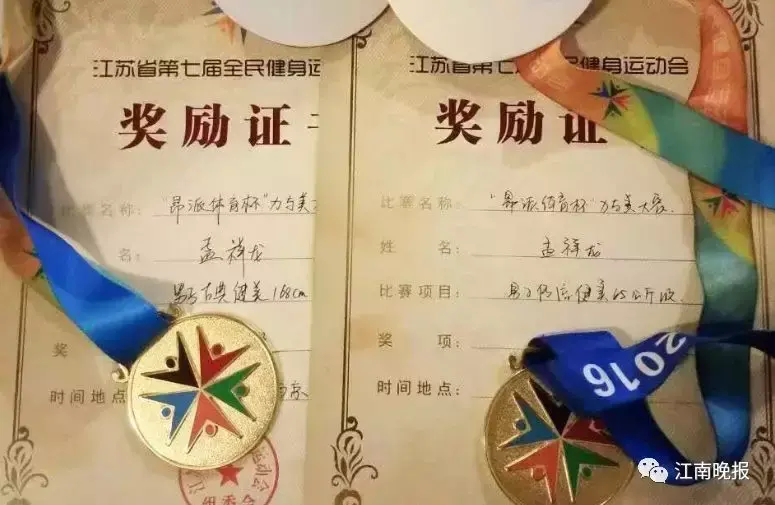 江苏省第七届全民健身运
奖励证
比赛名称： "昂派体育杯"力与美
名： 孟祥龙
男子古典健美168cm
奖
时间地点
组委会
江苏省第七 民健身运动会
奖励证
比赛名称： "昂派体育杯"力与美大赛
姓 名： 孟祥龙
比赛项目： 男子传统健美65公斤级
奖 项：
时间地点：
2016
江南晚报